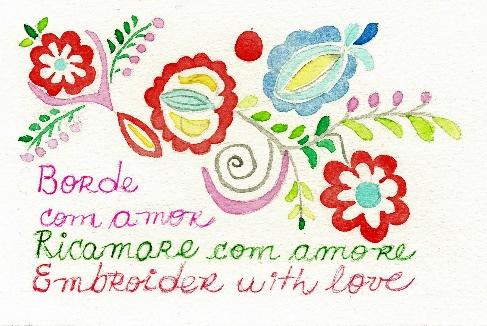 Borde
com amor
Ricamare com amore
Embroider with love